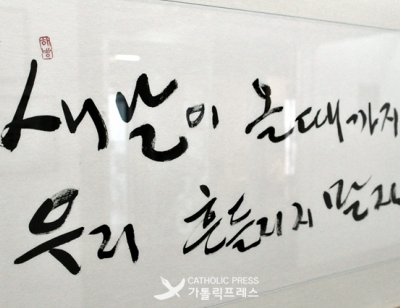 새날이 올때까지
우리 흔들리지 말자
CATHOLIC PRESS
가톨릭프레스